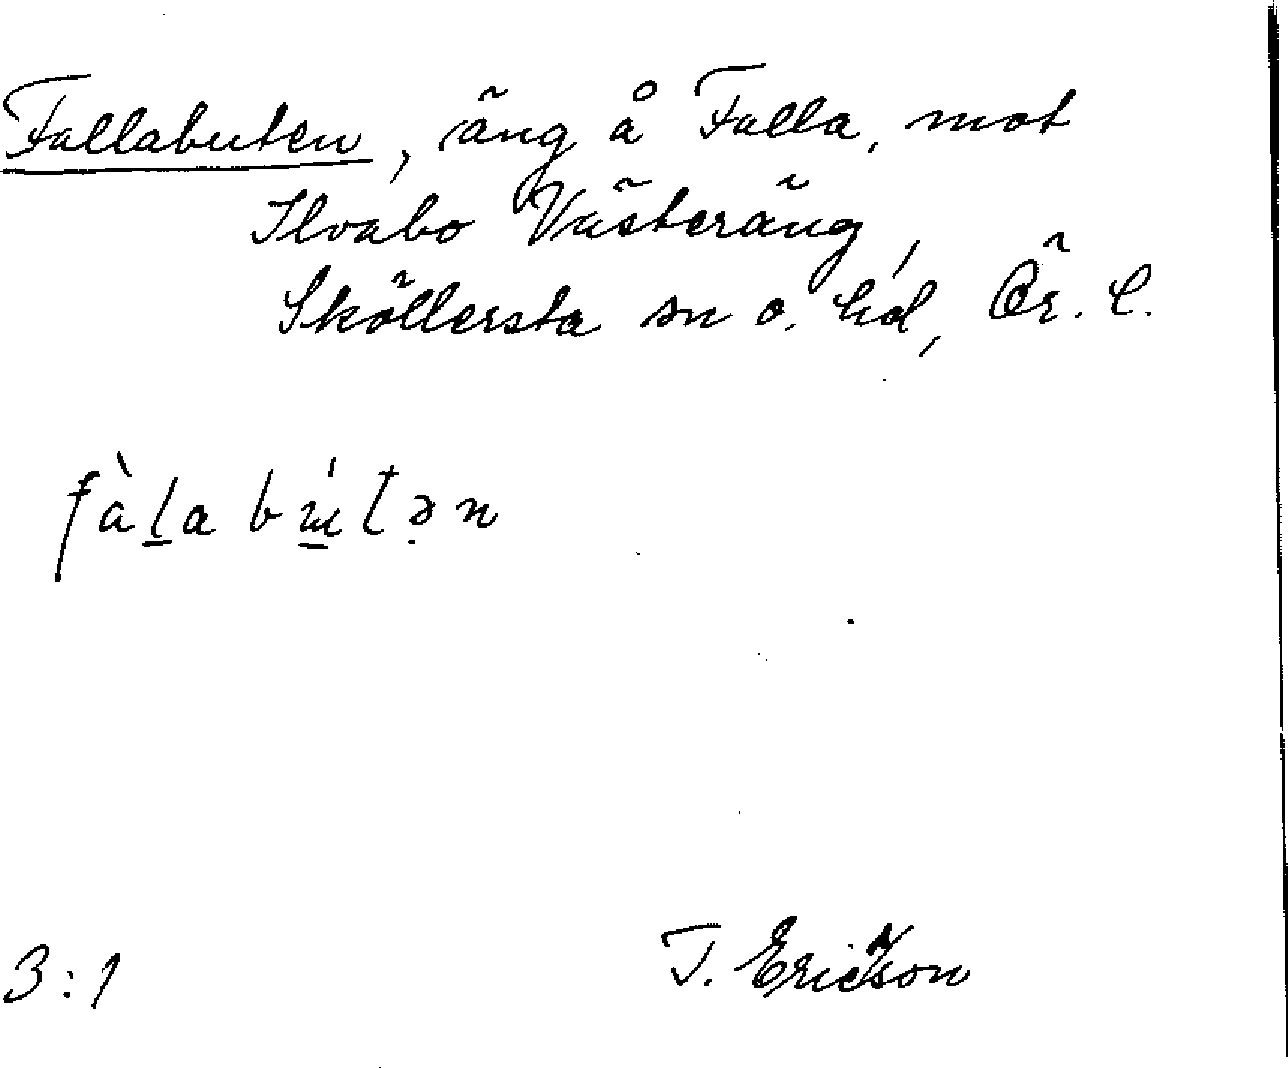 Fallabuten, äng å Falla, mot
Ilvabo Västeräng,
Sköllersta sn o. hd, Ör. l.
3:1
T. Ericson